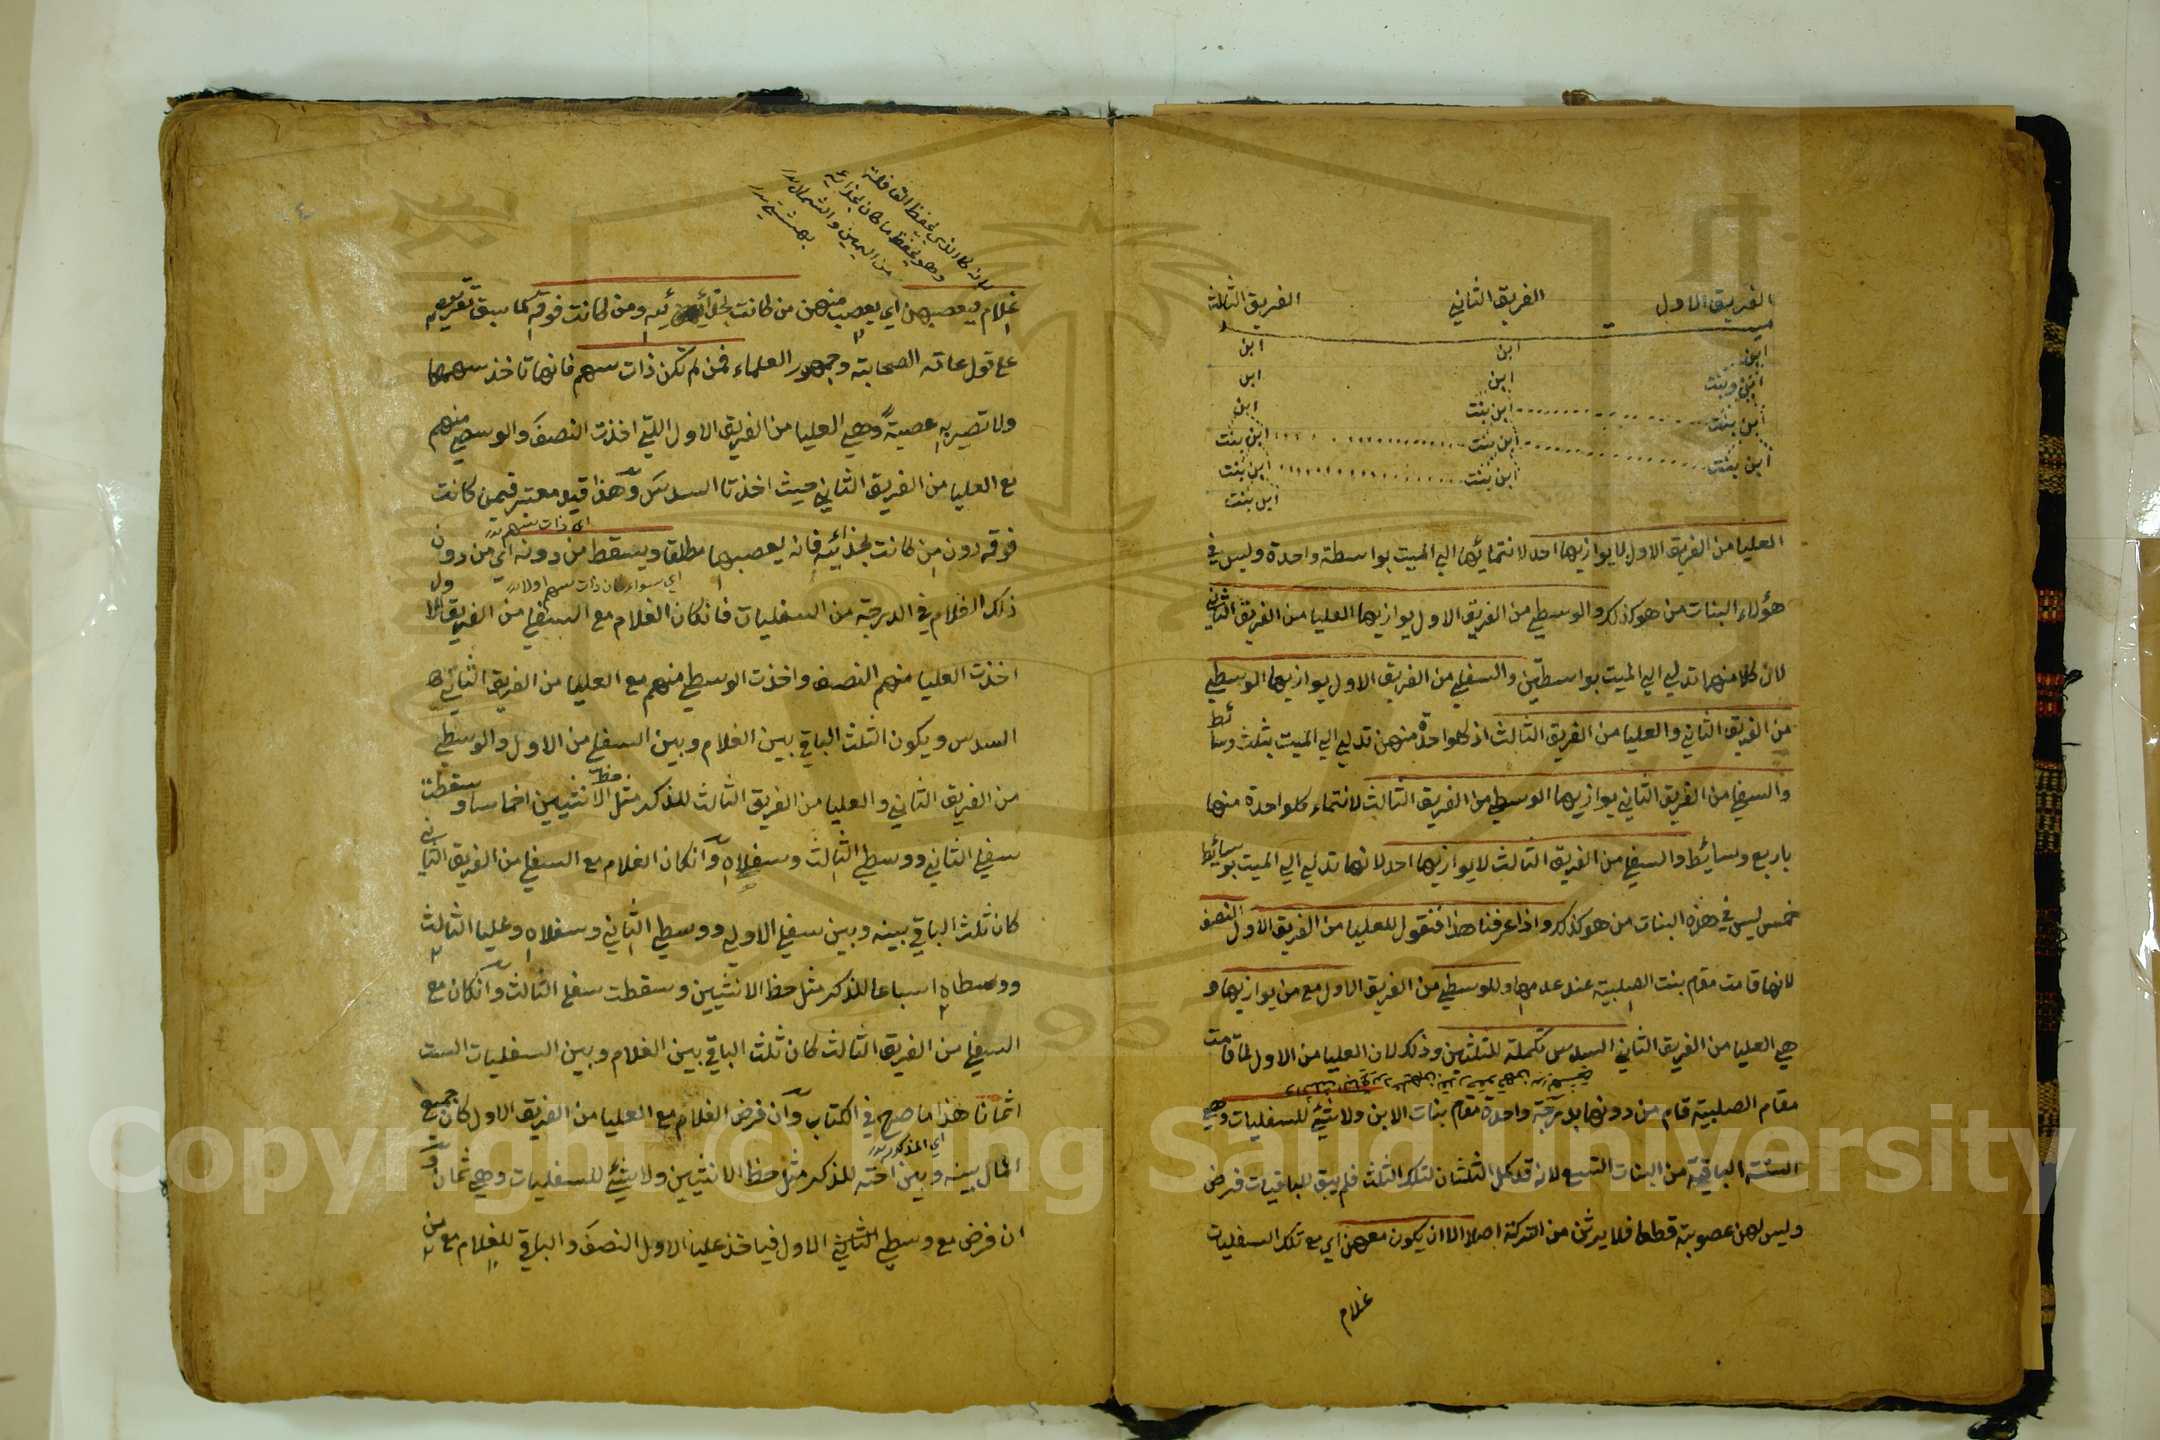 الفريق الاول الفريق الثاني الفريق الثالث
ميت
ابن ابن ابن
ابن وبنت ابن ابن
ابن بنت ابن بنت ابن
ابن بنت ابن بنت ابن بنت
ابن بنت ابن بنت
ابن بنت
العليا من الفريق الاول لا يوازيها احد لانتمائها الي الميت بواسطة واحدة وليس في
هؤلاء البنات من هو كذلك والوسطي من الفريق الاول يوازيها العليا من الفريق الثاني
لان كلا منهما تدلي الي الميت بواسطتين والسفلي من الفريق الاول يوازيها الوسطي
من الفريق الثاني والعليا من الفريق الثالث اذ كلواحدة منهن تدلي الي الميت بثلث وسائط
والسفلي من الفريق الثاني يوازيها الوسطي من الفريق الثالث لانتماء كلواحدة منهما
باربع وسائط والسفلي من الفريق الثالث لا يوازيها احد لانها تدلي الي الميت بوسائط
خمس ليس في هذه البنات من هو كذلك واذا عرفنا هذا فنقول للعليا من الفريق الاول النصف
لانها قامت مقام بنت الصلبية عند عدمها وللوسطي من الفريق الاول مع من يوازيها و
هي العليا من الفريق الثاني السدس تكملة للثلثين وذلك لان العليا من الاول لما قامت
مقام الصلبية قام من دونها بدرجة واحدة مقام بنات الابن ولا شئ للسفليات وهي
الستة الباقية من البنات التسع لانه قد كمل الثلثان لتلك الثلث فلم يبق للباقيات فرض
وليس لهن عصوبة قطعا فلا يرثن من التركة اصلا الا ان يكون معهن اي مع تلك السفليات
غلام
كالذي يحفظ القافلة
وهو يحفظ ما كان بحذائه
من اليمين والشمال
غلام فيعصبهن اي يعصب منهن من كانت بحذائه ومن كانت فوقه كما سبق تقريره
علي قول عامة الصحابة وجمهور العلماء فمن لم تكن ذات سهم فانها تاخذ سهمها
ولا تصير به عصبة وهي العليا من الفريق الاول التي اخذت النصف والوسطي منهم
مع العليا من الفريق الثاني حيث اخذتا السدس وهذا قيد معتبر فيمن كانت
اي ذات سهم
فوقه دون من كانت بحذائه فانه يعصبها مطلقا ويسقط من دونه اي من دون
اي سواء كان ذات سهم اولا
ذلك الغلام في الدرجة من السفليات فانكان الغلام مع السفلي من الفريق الاول
اخذت العليا منهم النصف واخذت الوسطي منهم مع العليا من الفريق الثاني
السدس ويكون الثلث الباقي بين الغلام وبين السفلي من الاول والوسطي
من الفريق الثاني والعليا من الفريق الثالث للذكر مثل حظ الانثيين اخماسا وسقطت
سفلي الثاني ووسطي الثالث وسفلاه وانكان الغلام مع السفلي من الفريق الثاني
كان ثلث الباقي بينه وبين سفلي الاولي ووسطي الثاني وسفلاه وعليا الثالث
ووسطاه اسباعا للذكر مثل حظ الانثيين وسقطت سفلي الثالث وانكان مع
السفلي من الفريق الثالث كان ثلث الباقي بين الغلام وبين السفليات الست
اثمانا هذا ما صرح في الكتاب وان فرض الغلام مع العليا من الفريق الاول كان جميع
اي المذكور
المال بينه وبين اخته للذكر مثل حظ الانثيين ولا شئ للسفليات وهي ثمان
ان فرض مع وسطي الاول فياخذ عليا الاول النصف والباقي للغلام مع من
Copyright © King Saud University
1957